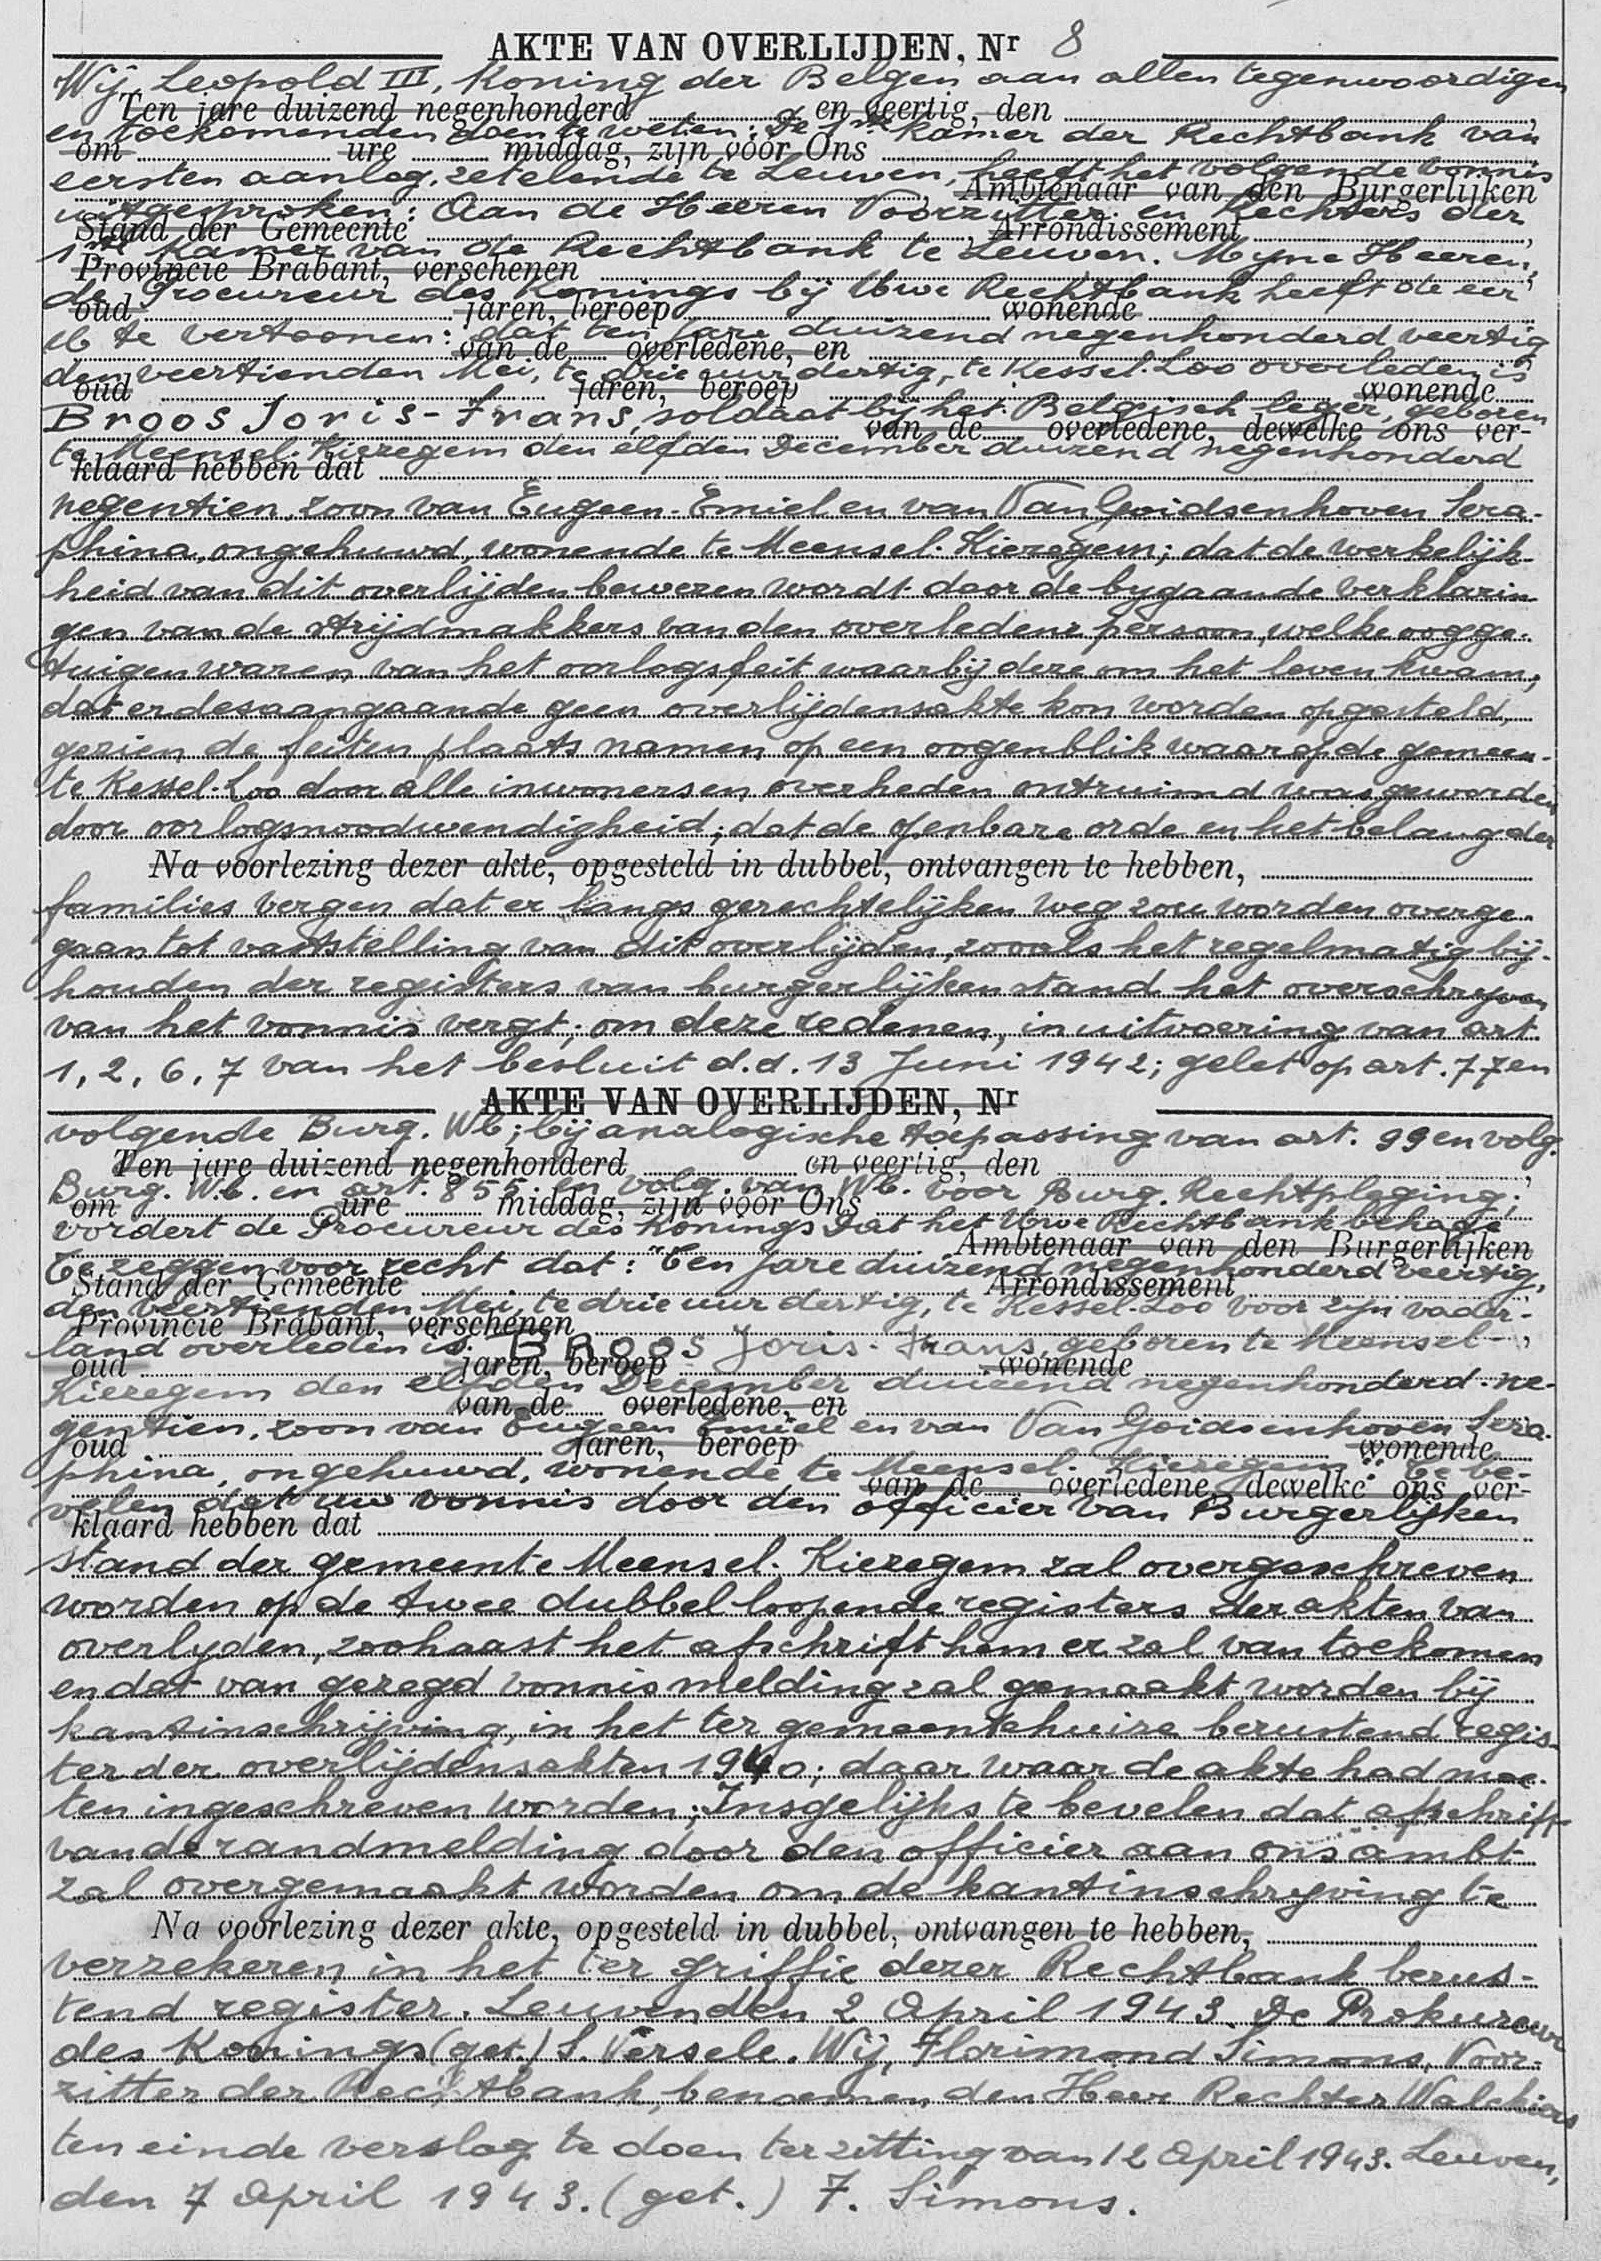 AKTE VAN OVERLIJDEN, Nr 8
Wij, Leopold III, Koning der Belgen aan allen tegenwoordigen
Ten jare duizend negenhonderd en veertig, den
en toekomenden doen te weten: De 1ste Kamer der Rechtbank van
om ure middag, zijn vóór Ons
eersten aanleg, zetelende te Leuven, heeft het volgende vonnis
Ambtenaar van den Burgerlijken
uitgesproken: Aan de Heeren Voorzitter en Rechters der
Stand der Gemeente , Arrondissement ,
1ste Kamer van de Rechtbank te Leuven. Myne Heeren,
Provincie Brabant, verschenen
de Procureur des Konings bij Uwe Rechtbank heeft de eer
oud jaren, beroep wonende
U te vertoonen: dat ten jare duizend negenhonderd veertig
van de overledene, en
den veertienden Mei, te drie uur dertig, te Kessel-Loo overleden is
oud jaren, beroep wonende
Broos Joris-Frans, soldaat bij het Belgisch leger, geboren
van de overledene, dewelke ons ver-
te Meensel-Kiezegem den elfden December duizend negenhonderd
klaard hebben dat
negentien, zoon van Eugeen-Emiel en van Van Goidsenhoven Sera-
phina, ongehuwd, wonende te Meensel-Kiezegem; dat de werkelijk-
heid van dit overlijden bewezen wordt door de bygaande verklarin-
gen van de strijdmakkers van den overledene persoon, welke oogge-
tuigen waren van het oorlogsfeit waarbij deze om het leven kwam;
dat er desaangaande geen overlijdensakte kon worden opgesteld,
gezien de feiten plaats namen op een oogenblik waarop de gemeen-
te Kessel-Loo door alle inwoners en overheden ontruimd was geworden
door oorlogsnoodwendigheid; dat de openbare orde en het belang der
Na voorlezing dezer akte, opgesteld in dubbel, ontvangen te hebben,
families vergen dat er langs gerechtelijken weg zou worden overge-
gaan tot vaststelling van dit overlijden, zooals het regelmatig bij-
houden der registers van burgerlijken stand het overschryven
van het vonnis vergt; om deze redenen, in uitvoering van art.
1, 2, 6, 7 van het besluit d.d. 13 Juni 1942; gelet op art. 77 en
AKTE VAN OVERLIJDEN, Nr
volgende Burg. Wb; bij analogische toepassing van art. 99 en volg.
Ten jare duizend negenhonderd en veertig, den
Burg. W.b. en art. 855 en volg. van Wb. voor Burg. Rechtpleging;
om ure middag, zijn vóór Ons
vordert de Procureur des Konings Dat het Uwe Rechtbank behage
Ambtenaar van den Burgerlijken
Te zeggen voor recht dat: "Ten jare duizend negenhonderd veertig,
Stand der Gemeente Arrondissement
den veertienden Mei, te drie uur dertig, te Kessel-Loo voor zijn vader-
Provincie Brabant, verschenen ,
land overleden is. BROOS Joris-Frans, geboren te Meensel-
oud jaren, beroep wonende
Kiezegem den elfden December duizend negenhonderd ne-
van de overledene, en
gentien, zoon van Eugeen Emiel en van Van Goidsenhoven Sera-
oud jaren, beroep wonende
phina, ongehuwd, wonende te Meensel-Kiezegem" te be-
van de overledene, dewelke ons ver-
velen dat uw vonnis door den officier van Burgerlijken
klaard hebben dat
stand der gemeente Meensel-Kiezegem zal overgeschreven
worden op de twee dubbel loopende registers der akten van
overlyden, zoohaast het afschrift hem er zal van toekomen
en dat van gezegd vonnis melding zal gemaakt worden bij
kantinschrijving, in het ter gemeentehuize berustend regis-
ter der overlijdensakten 1940; daar waar de akte had moe-
ten ingeschreven worden; Insgelijks te bevelen dat afschrift
van de randmelding door den officier aan ons ambt
zal overgemaakt worden om de kantinschryving te
Na voorlezing dezer akte, opgesteld in dubbel, ontvangen te hebben,
verzekeren in het ter griffie dezer Rechtbank berus-
tend register. Leuven den 2 April 1943. De Prokureur
des Konings (get.) S. Versele. Wij, Florimond Simons, Voor-
zitter der Rechtbank, benoemen den Heer Rechter Walckiers
ten einde verslag te doen ter zitting van 12 April 1943. Leuven,
den 7 April 1943. (get.) F. Simons.